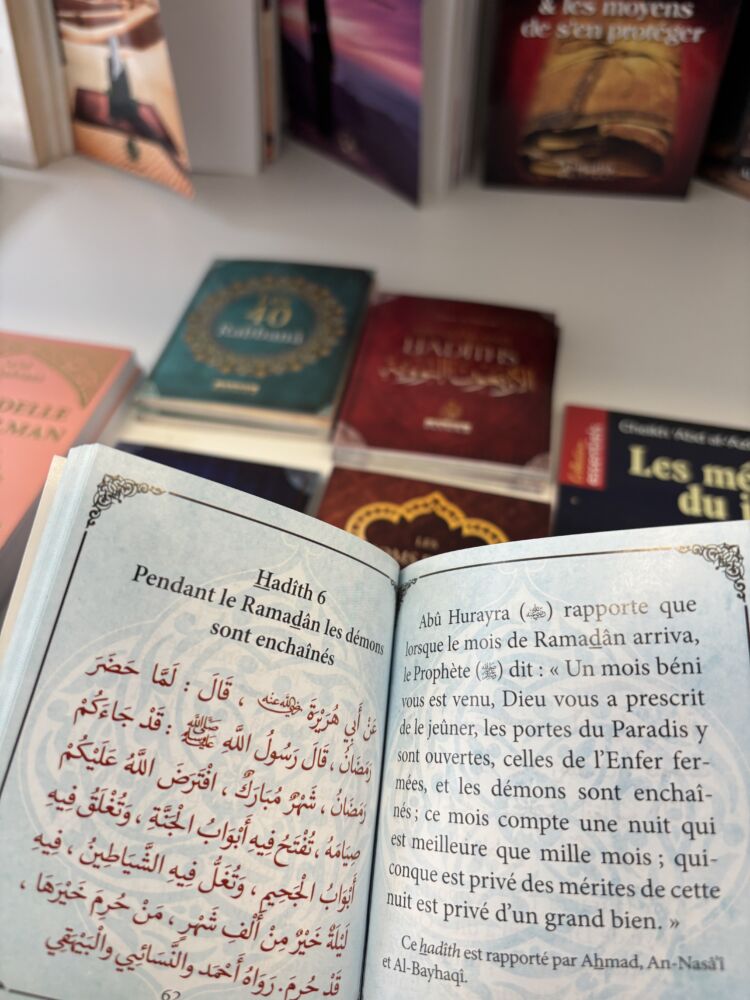 & les moyens
de s'en protéger
40
HADITHS
الأربعون النووية
DELLE
LMAN
Les mé
du j
LES
Hadîth 6
Pendant le Ramadân les démons
sont enchaînés
عَنْ أَبِي هُرَيْرَةَ رضي الله عنه ، قَالَ : لَمَّا حَضَرَ
رَمَضَانُ ، قَالَ رَسُولُ اللَّهِ ﷺ : قَدْ جَاءَكُمْ
رَمَضَانُ ، شَهْرٌ مُبَارَكٌ ، افْتَرَضَ اللَّهُ عَلَيْكُمْ
صِيَامَهُ ، تُفْتَحُ فِيهِ أَبْوَابُ الْجَنَّةِ ، وَتُغْلَقُ فِيهِ
أَبْوَابُ الْجَحِيمِ ، وَتُغَلُّ فِيهِ الشَّيَاطِينُ ، فِيهِ
لَيْلَةٌ خَيْرٌ مِنْ أَلْفِ شَهْرٍ ، مَنْ حُرِمَ خَيْرَهَا ،
قَدْ حُرِمَ. رَوَاهُ أَحْمَد والنَّسَائِيي والْبَيْهَقِي
62
Abû Hurayra (رضي الله عنه) rapporte que
lorsque le mois de Ramadân arriva,
le Prophète (ﷺ) dit : « Un mois béni
vous est venu, Dieu vous a prescrit
de le jeûner, les portes du Paradis y
sont ouvertes, celles de l'Enfer fer-
mées, et les démons sont enchaî-
nés ; ce mois compte une nuit qui
est meilleure que mille mois ; qui-
conque est privé des mérites de cette
nuit est privé d'un grand bien. »
Ce hadîth est rapporté par Ahmad, An-Nasâ'î
et Al-Bayhaqî.